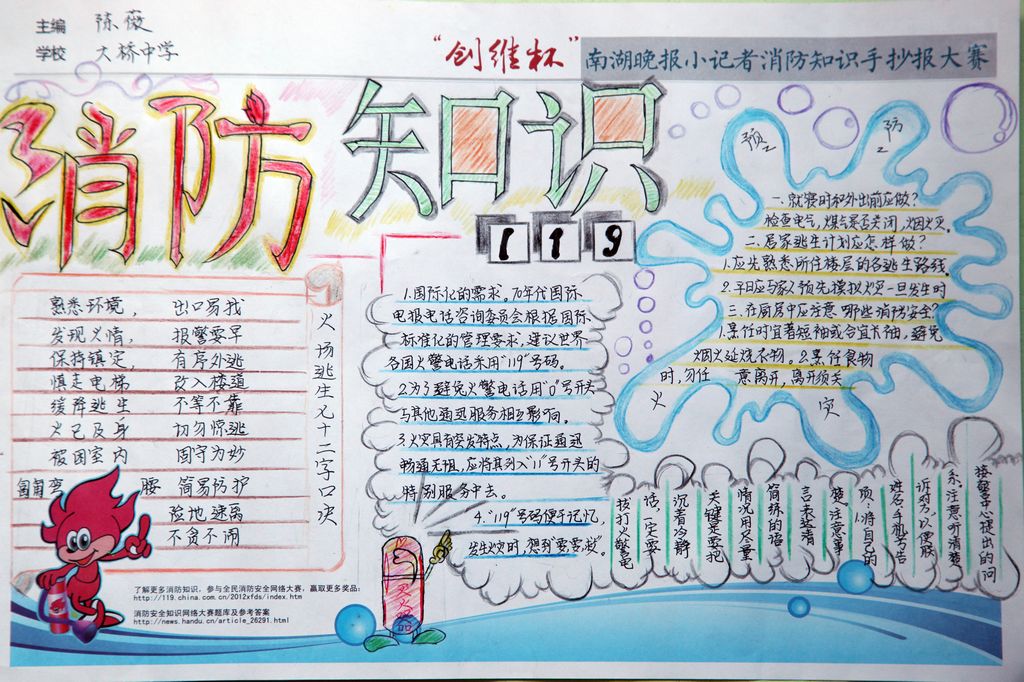 主编 陈薇
学校 大桥中学
“创维杯”南湖晚报小记者消防知识手抄报大赛
消防知识
119
熟悉环境， 出口易找
发现火情， 报警要早
保持镇定， 有序外逃
慎走电梯 改入楼道
缓降逃生 不等不靠
火已及身 切勿惊逃
被困室内 固守为妙
匍匍弯腰 简易防护
险地速离
不贪不闹
火场逃生七十二字口决
1.国际化的需求。70年代国际
电报电话咨询委员会根据国际
标准化的管理要求，建议世界
各国火警电话采用“119”号码。
2.为了避免火警电话用“0”号开头
与其他通迅服务相互影响。
3.火灾具有突发特点，为保证通迅
畅通无阻，应将其列入“11”号开头的
特别服务中去。
4.“119”号码便于记忆，
发生火灾时，想到“要要救”。
预防
一.就寝时和外出前应做？
检查电气，煤气是否关闭，烟火灭。
二.居家逃生计划应怎样做？
1.应先熟悉所住楼层的各逃生路线。
2.平日应与家人预先模拟火灾一旦发生时
三.在厨房中应注意哪些消防安全？
1.烹饪时宜著短袖或合宜长袖，避免
烟火延烧衣物。2.烹饪食物
时，勿任意离开，离开须关
火灾
接警中心提出的问
系.注意听清楚
诉对方，以便联
姓名手机号告
项：1.将自己的
楚.注意事
言表达清
简练的语
情况用尽量
关键是要把
沉着冷静
话，一定要
拨打火警电
灭火器
了解更多消防知识，参与全民消防安全网络大赛，赢取更多奖品：
http://119.china.com.cn/2012xfds/index.htm
消防安全知识网络大赛题库及参考答案
http://news.handu.cn/article_26291.html